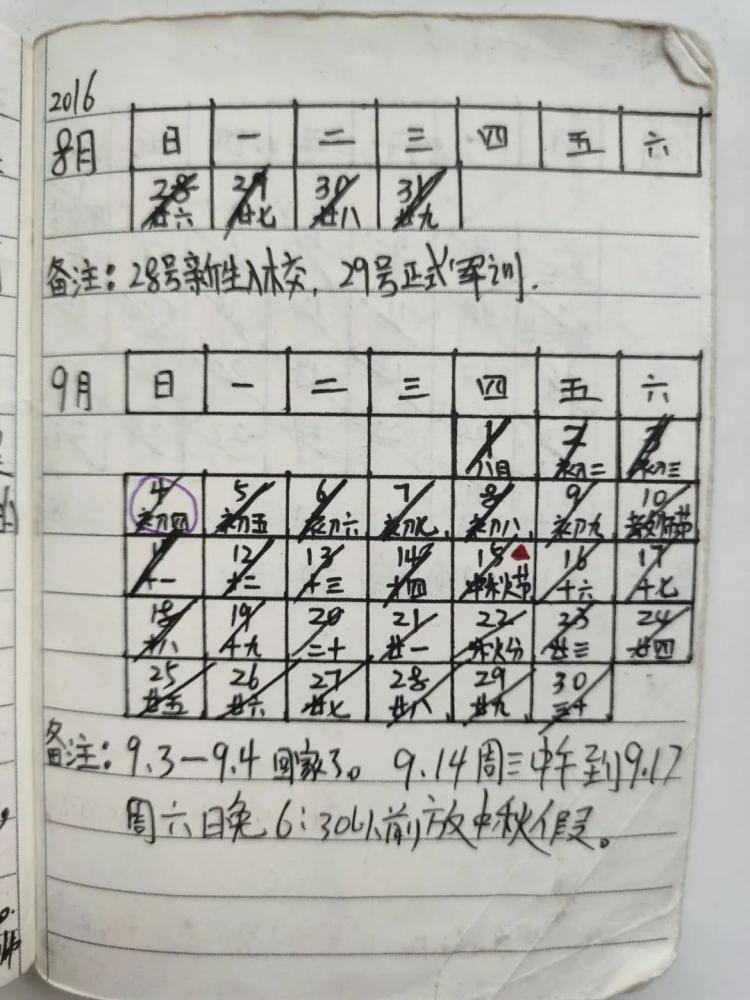 2016
8月 日 一 二 三 四 五 六
28 29 30 31
廿六 廿七 廿八 廿九
备注：28号新生入校，29号正式军训.
9月 日 一 二 三 四 五 六
1 2 3
八月 初二 初三
4 5 6 7 8 9 10
初四 初五 初六 初七 初八 初九 教师节
11 12 13 14 15 16 17
十一 十二 十三 十四 中秋节 十六 十七
18 19 20 21 22 23 24
十八 十九 二十 廿一 秋分 廿三 廿四
25 26 27 28 29 30
廿五 廿六 廿七 廿八 廿九 三十
备注：9.3—9.4 回家了。 9.14 周三中午到9.17
周六日晚6:30以前放中秋假。